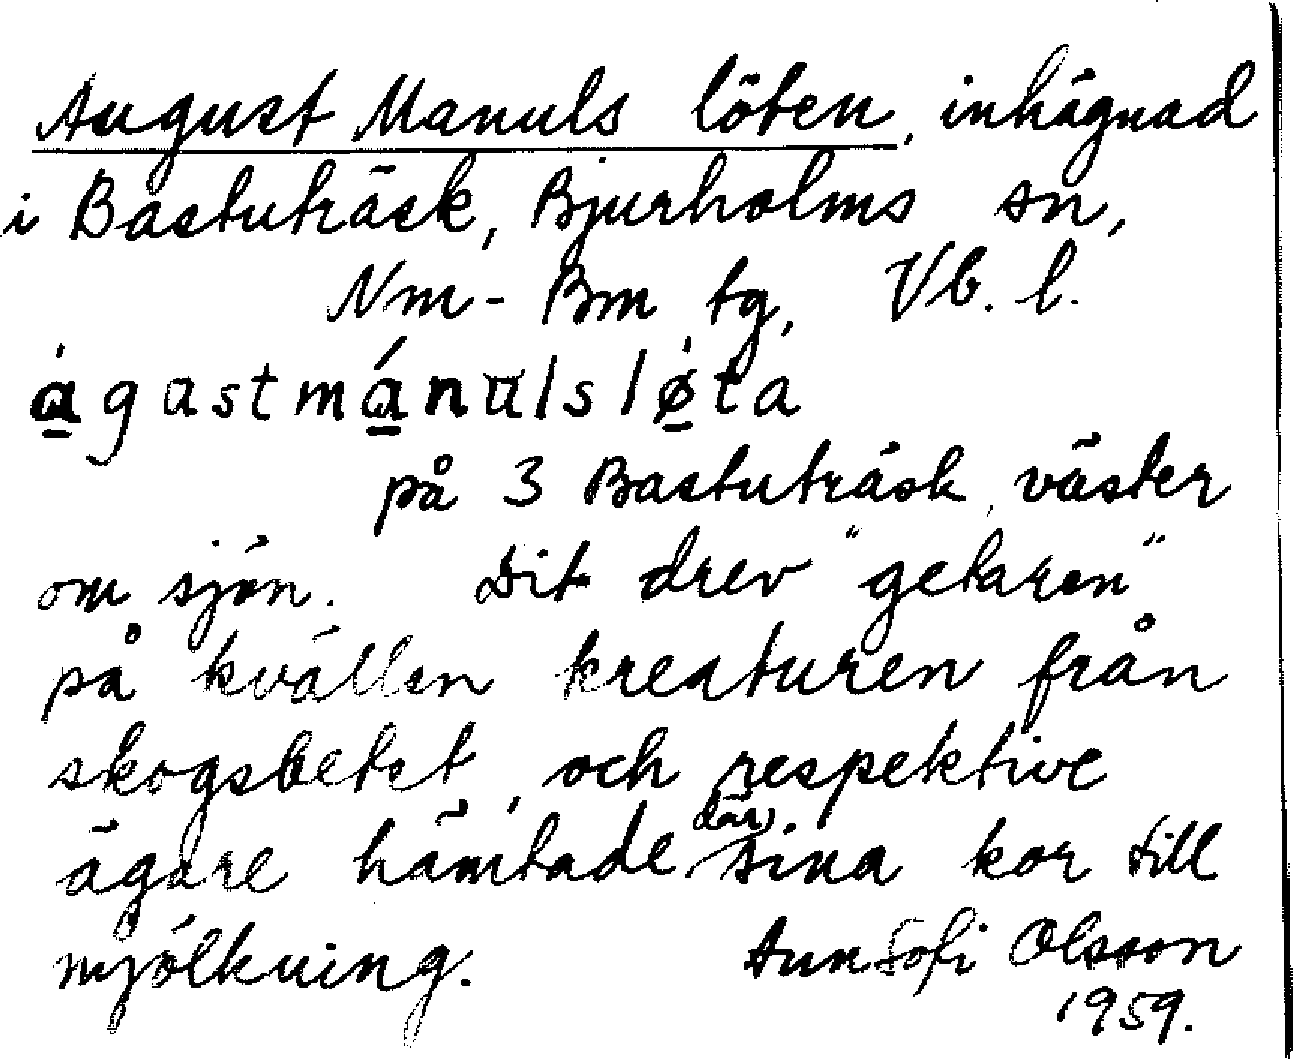 August Manuls löten, inhägnad
i Bastuträsk, Bjurholms sn,
Nm - Bm tg, Vb. l.
ágastmánulsløta
på 3 Bastuträsk, väster
om sjön. Dit drev "getaren"
på kvällen kreaturen från
skogsbetet, och respektive
ägare hämtade där sina kor till
mjölkning. Ann Sofi Olsson
1959.